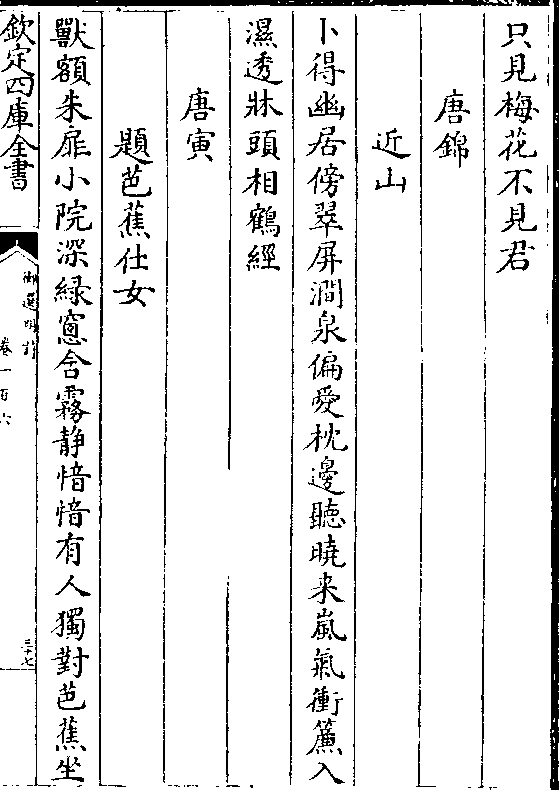 只見梅花不見君
唐錦
近山
卜得幽居傍翠屏澗泉偏愛枕邊聽曉来嵐氣衝簾入
濕透牀頭相鶴經
唐寅
題芭蕉仕女
獸額朱扉小院深緑窻含霧静愔愔有人獨對芭蕉坐
欽定四庫全書
御選明詩
卷一百六
三十七